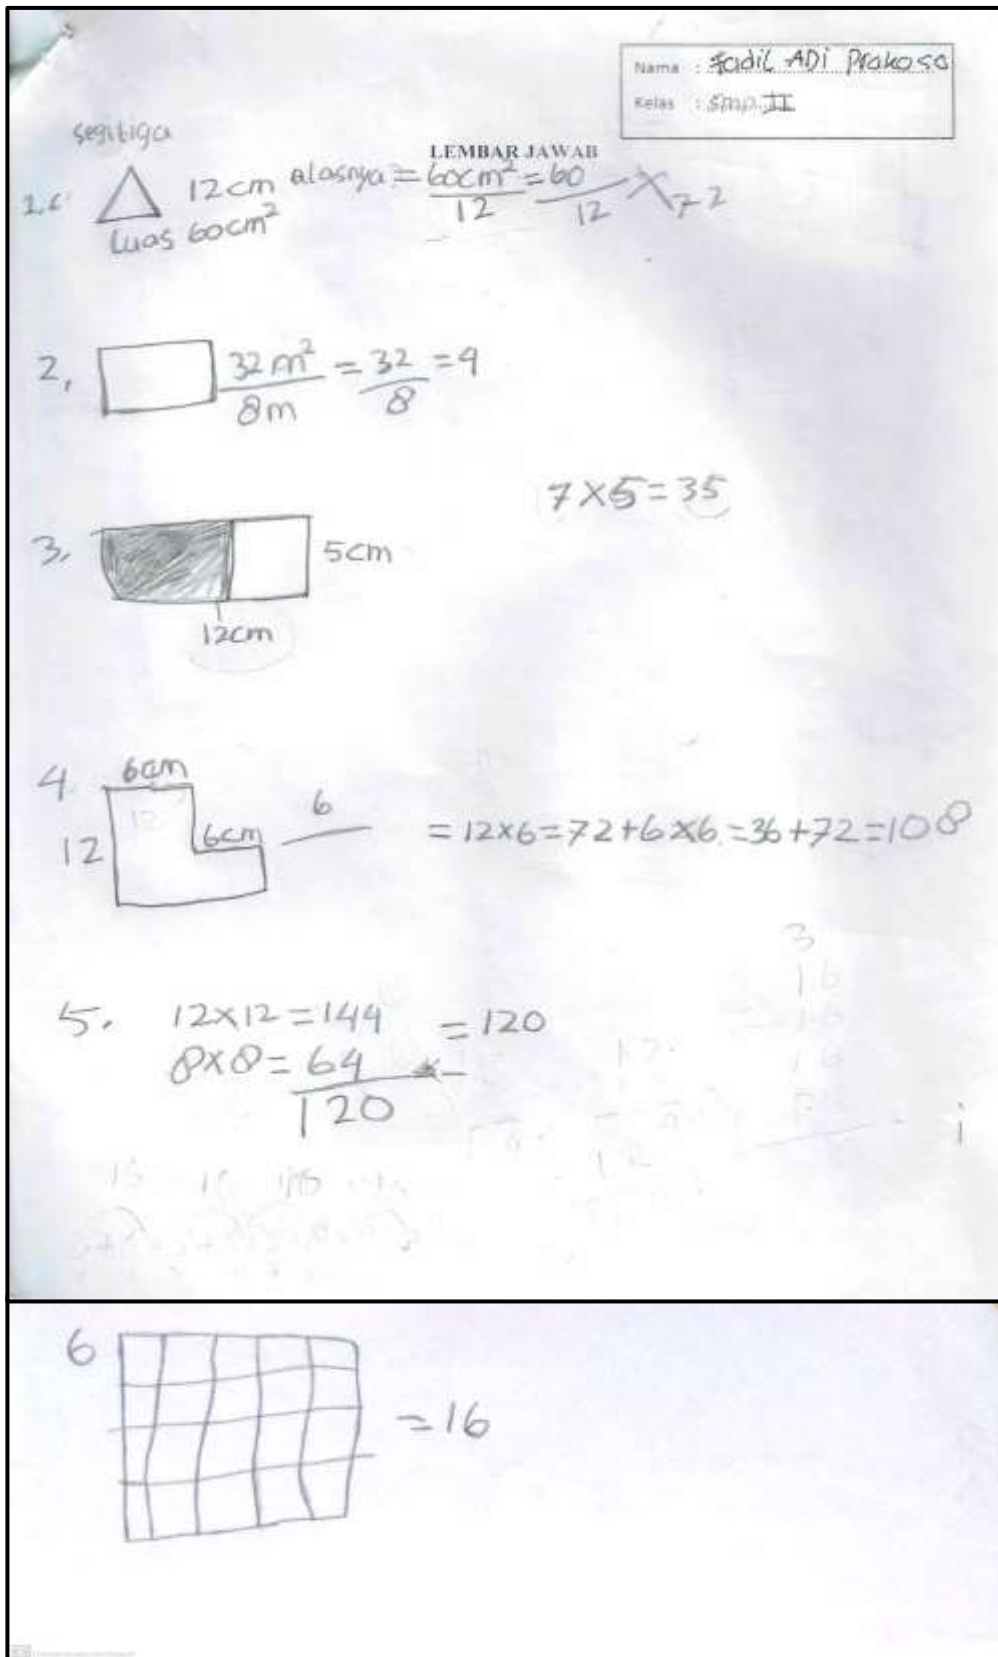 Nama : Fadil ADi Prakoso
Kelas : Smp. II
LEMBAR JAWAB
segitiga
12cm alasnya = 60cm² = 60
12 12 X 72
Luas 60cm²
2, 32 m² = 32 = 4
8m 8
7 X 5 = 35
3, 5cm
12cm
4. 6cm
12 6cm 6 = 12 x 6 = 72 + 6 x 6 = 36 + 72 = 108
5. 12 x 12 = 144 = 120
8 x 8 = 64 -
120
6 = 16